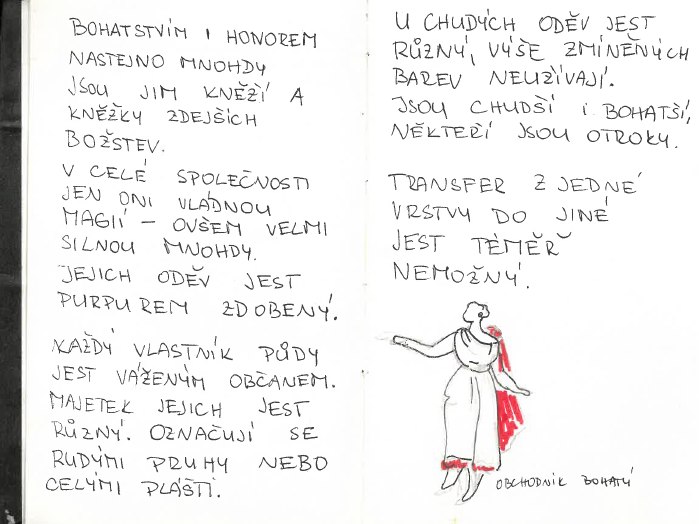 BOHATSTVÍM I HONOREM
NASTEJNO MNOHDY
JSOU JIM KNĚŽÍ A
KNĚŽKY ZDEJŠÍCH
BOŽSTEV.
V CELÉ SPOLEČNOSTI
JEN ONI VLÁDNOU
MAGIÍ – OVŠEM VELMI
SILNOU MNOHDY.
JEJICH ODĚV JEST
PURPUREM ZDOBENÝ.
KAŽDÝ VLASTNÍK PŮDY
JEST VÁŽENÝM OBČANEM.
MAJETEK JEJICH JEST
RŮZNÝ. OZNAČUJÍ SE
RUDÝMI PRUHY NEBO
CELÝMI PLÁŠTI.
U CHUDÝCH ODĚV JEST
RŮZNÝ, VÝŠE ZMÍNĚNÝCH
BAREV NEUŽÍVAJÍ.
JSOU CHUDŠÍ I BOHATŠÍ,
NĚKTEŘÍ JSOU OTROKY.
TRANSFER Z JEDNÉ
VRSTVY DO JINÉ
JEST TÉMĚŘ
NEMOŽNÝ.
OBCHODNÍK BOHATÝ